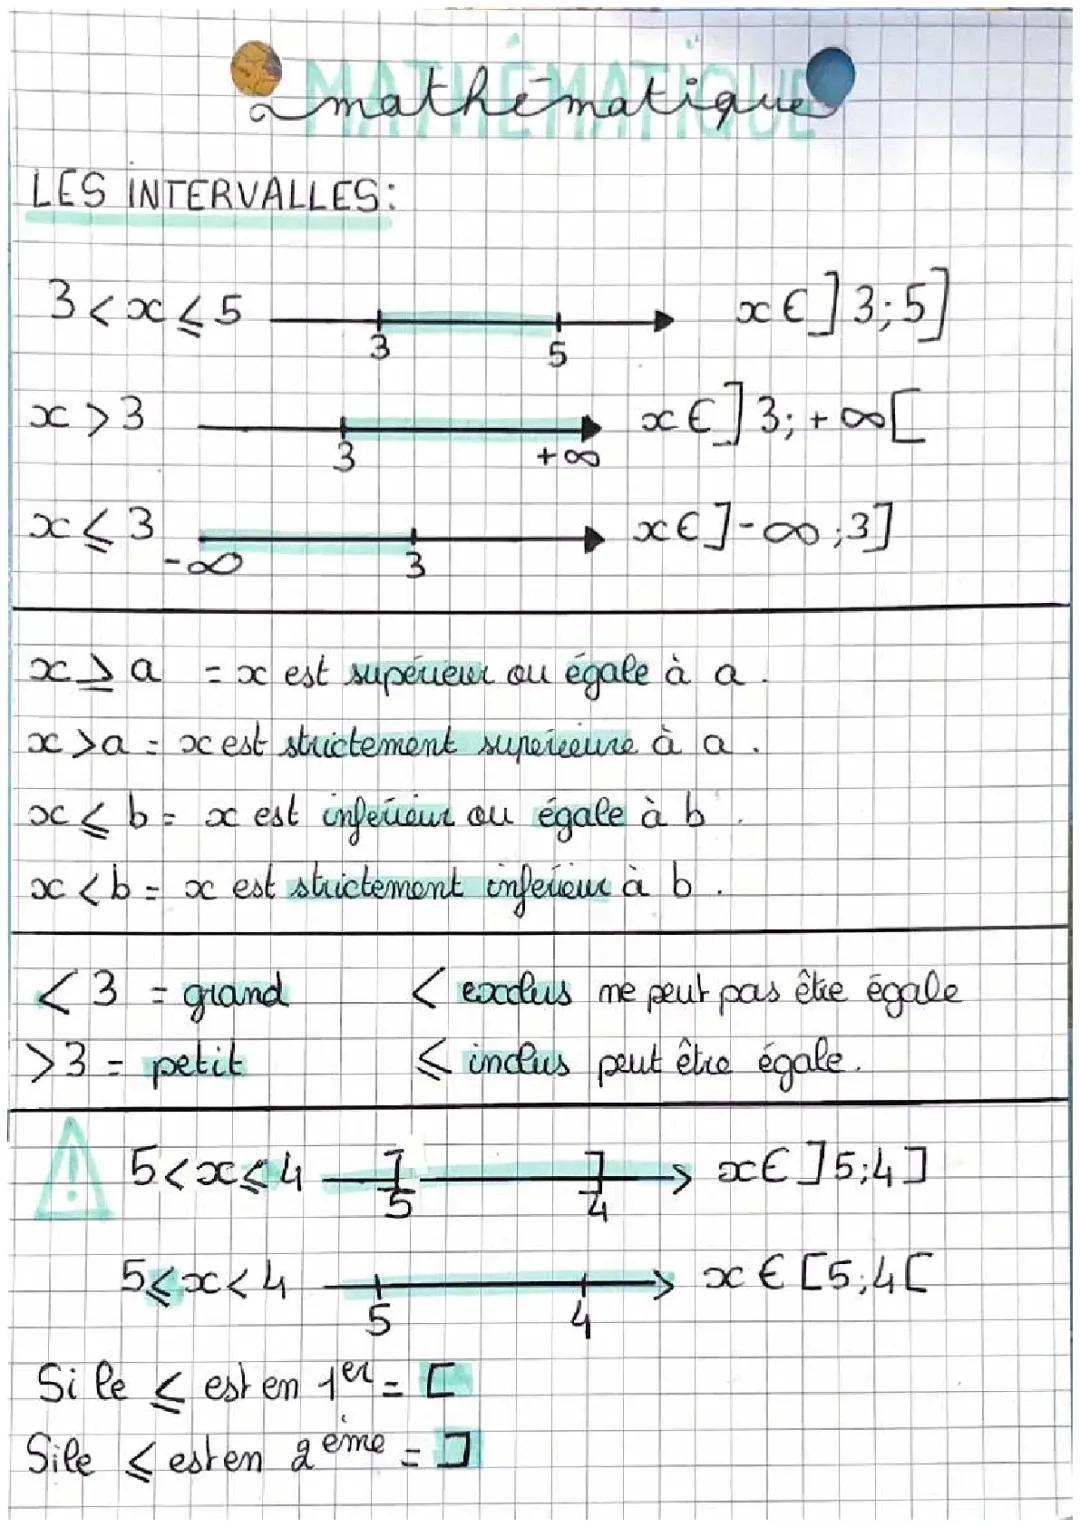 MATHÉMATIQUE
mathématique
LES INTERVALLES:
3 < x ⩽ 5 3 5 x ∈ ] 3 ; 5 ]
x > 3 3 +∞ x ∈ ] 3 ; +∞ [
x ⩽ 3 -∞ 3 x ∈ ] -∞ ; 3 ]
x ⩾ a = x est supérieur ou égale à a.
x > a = x est strictement supérieure à a.
x ⩽ b = x est inférieur ou égale à b.
x < b = x est strictement inférieur à b.
< 3 = grand < exclus ne peut pas être égale
> 3 = petit ⩽ inclus peut être égale.
! 5 < x ⩽ 4 ] 5 ] 4 x ∈ ] 5 ; 4 ]
5 ⩽ x < 4 5 4 x ∈ [ 5 ; 4 [
Si le ⩽ est en 1er = [
Si le ⩽ est en 2ème = ]